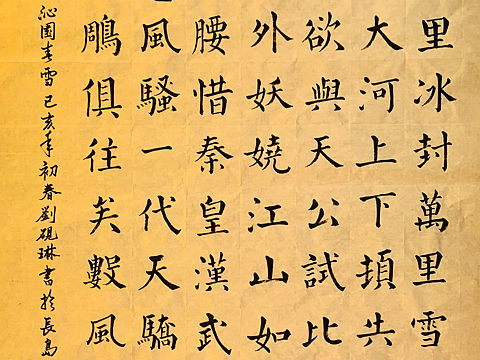 里冰封萬里雪
大河上下頓失
欲與天公試比
外妖嬈江山如
腰惜秦皇漢武
風騷一代天驕
鵰俱往矣數風
沁園春雪己亥年初春劉硯琳書於長島